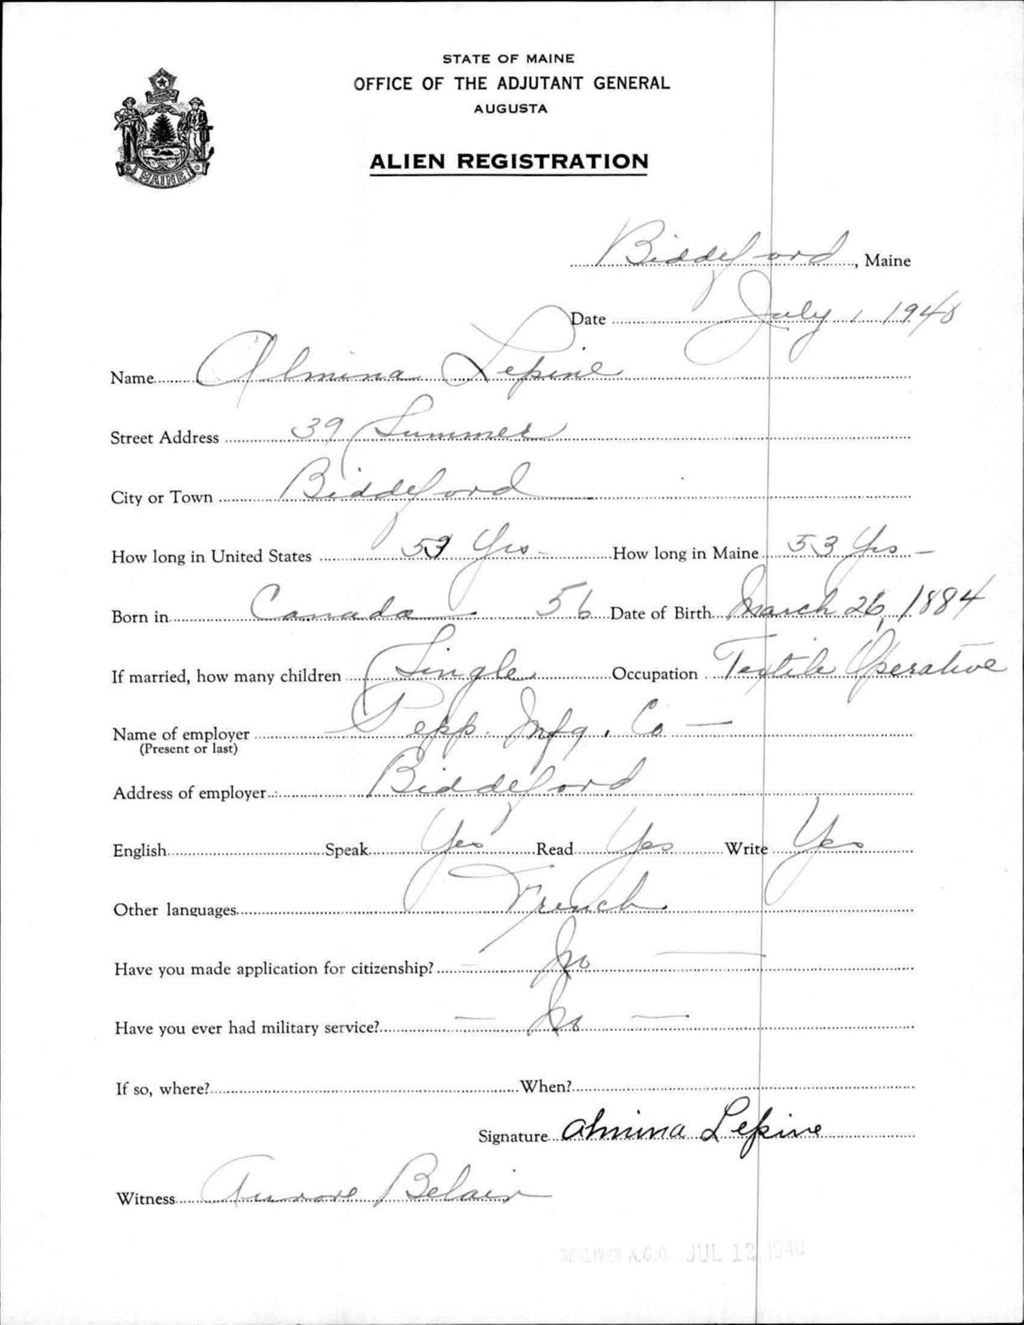 STATE OF MAINE
OFFICE OF THE ADJUTANT GENERAL
AUGUSTA
MAINE
ALIEN REGISTRATION
Biddeford, Maine
Date July 1, 1940
Name Almina Lepine
Street Address 39 Summer
City or Town Biddeford
How long in United States 53 Yrs - How long in Maine 53 Yrs -
Born in Canada 56 Date of Birth March 26, 1884
If married, how many children Single Occupation Textile Operative
Name of employer Pepp. Mfg. Co -
(Present or last)
Address of employer Biddeford
English Speak Yes Read Yes Write Yes
Other languages French
Have you made application for citizenship? No
Have you ever had military service? - No -
If so, where? When?
Signature Almina Lepine
Witness Aurore Belair
RECEIVED A.G.O. JUL 12 1940